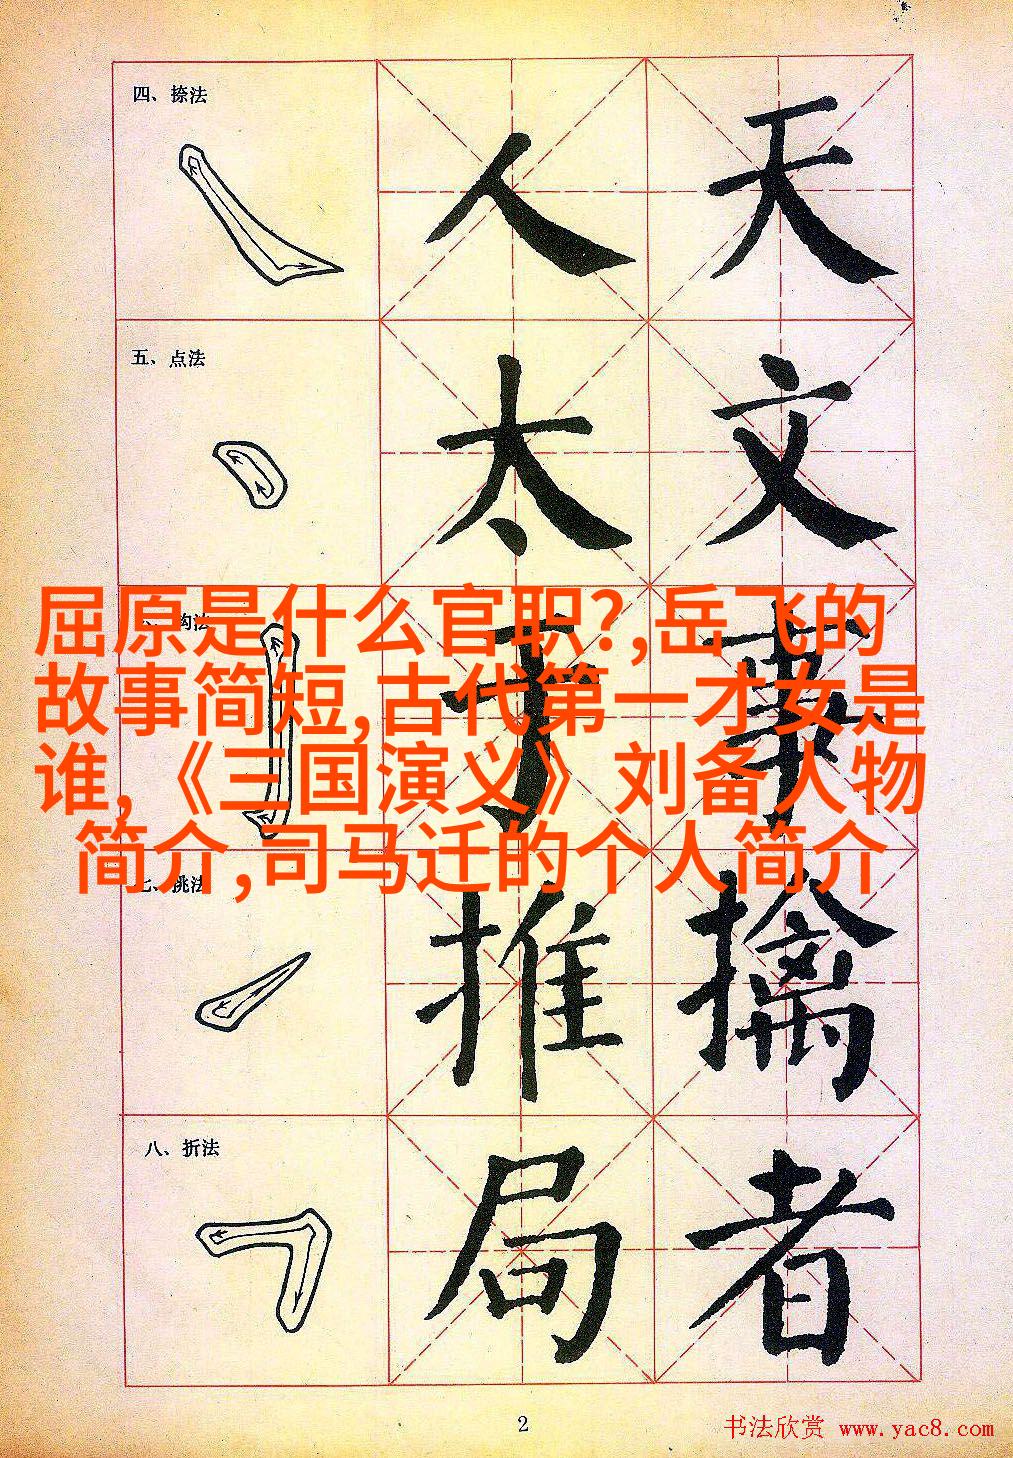 四、捺法
人 天
五、点法
太 文
六、钩法
于 事
屈原是什么官职?,岳飞的
故事简短,古代第一才女是
谁,《三国演义》刘备人物
简介,司马迁的个人简介
七、挑法
推 擒
八、折法
局 者
2
书法欣赏 www.yac8.com